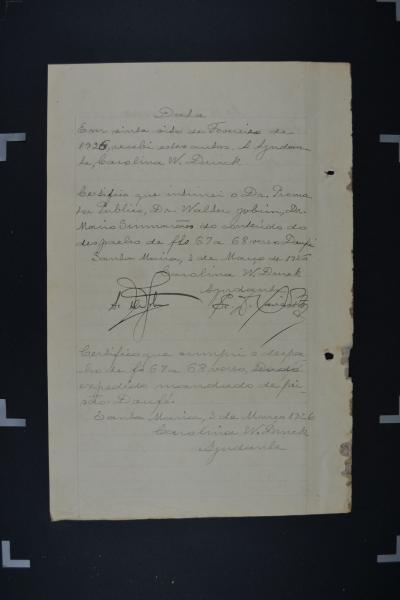 Data
Em vinte oito de Fevereiro de
1926, recebi estes autos. A Ajudan-
te, Carolina W. Druck
Certifico que intimei o Dr. Promo-
tor Publico, Dr. Walter Jobim, Dr.
Mario do conteúdo do
despacho de fls 67 a 68 verso. Doufé
Santa Maria, 3 de Março de 1926
Carolina W. Druck
Ajudante
Certifico que cumpri o despa-
cho de fs 67 a 68 verso,
expedido mandado de pri-
são. Doufé.
Santa Maria, 3 de Março 1926
Carolina W. Druck
Ajudante